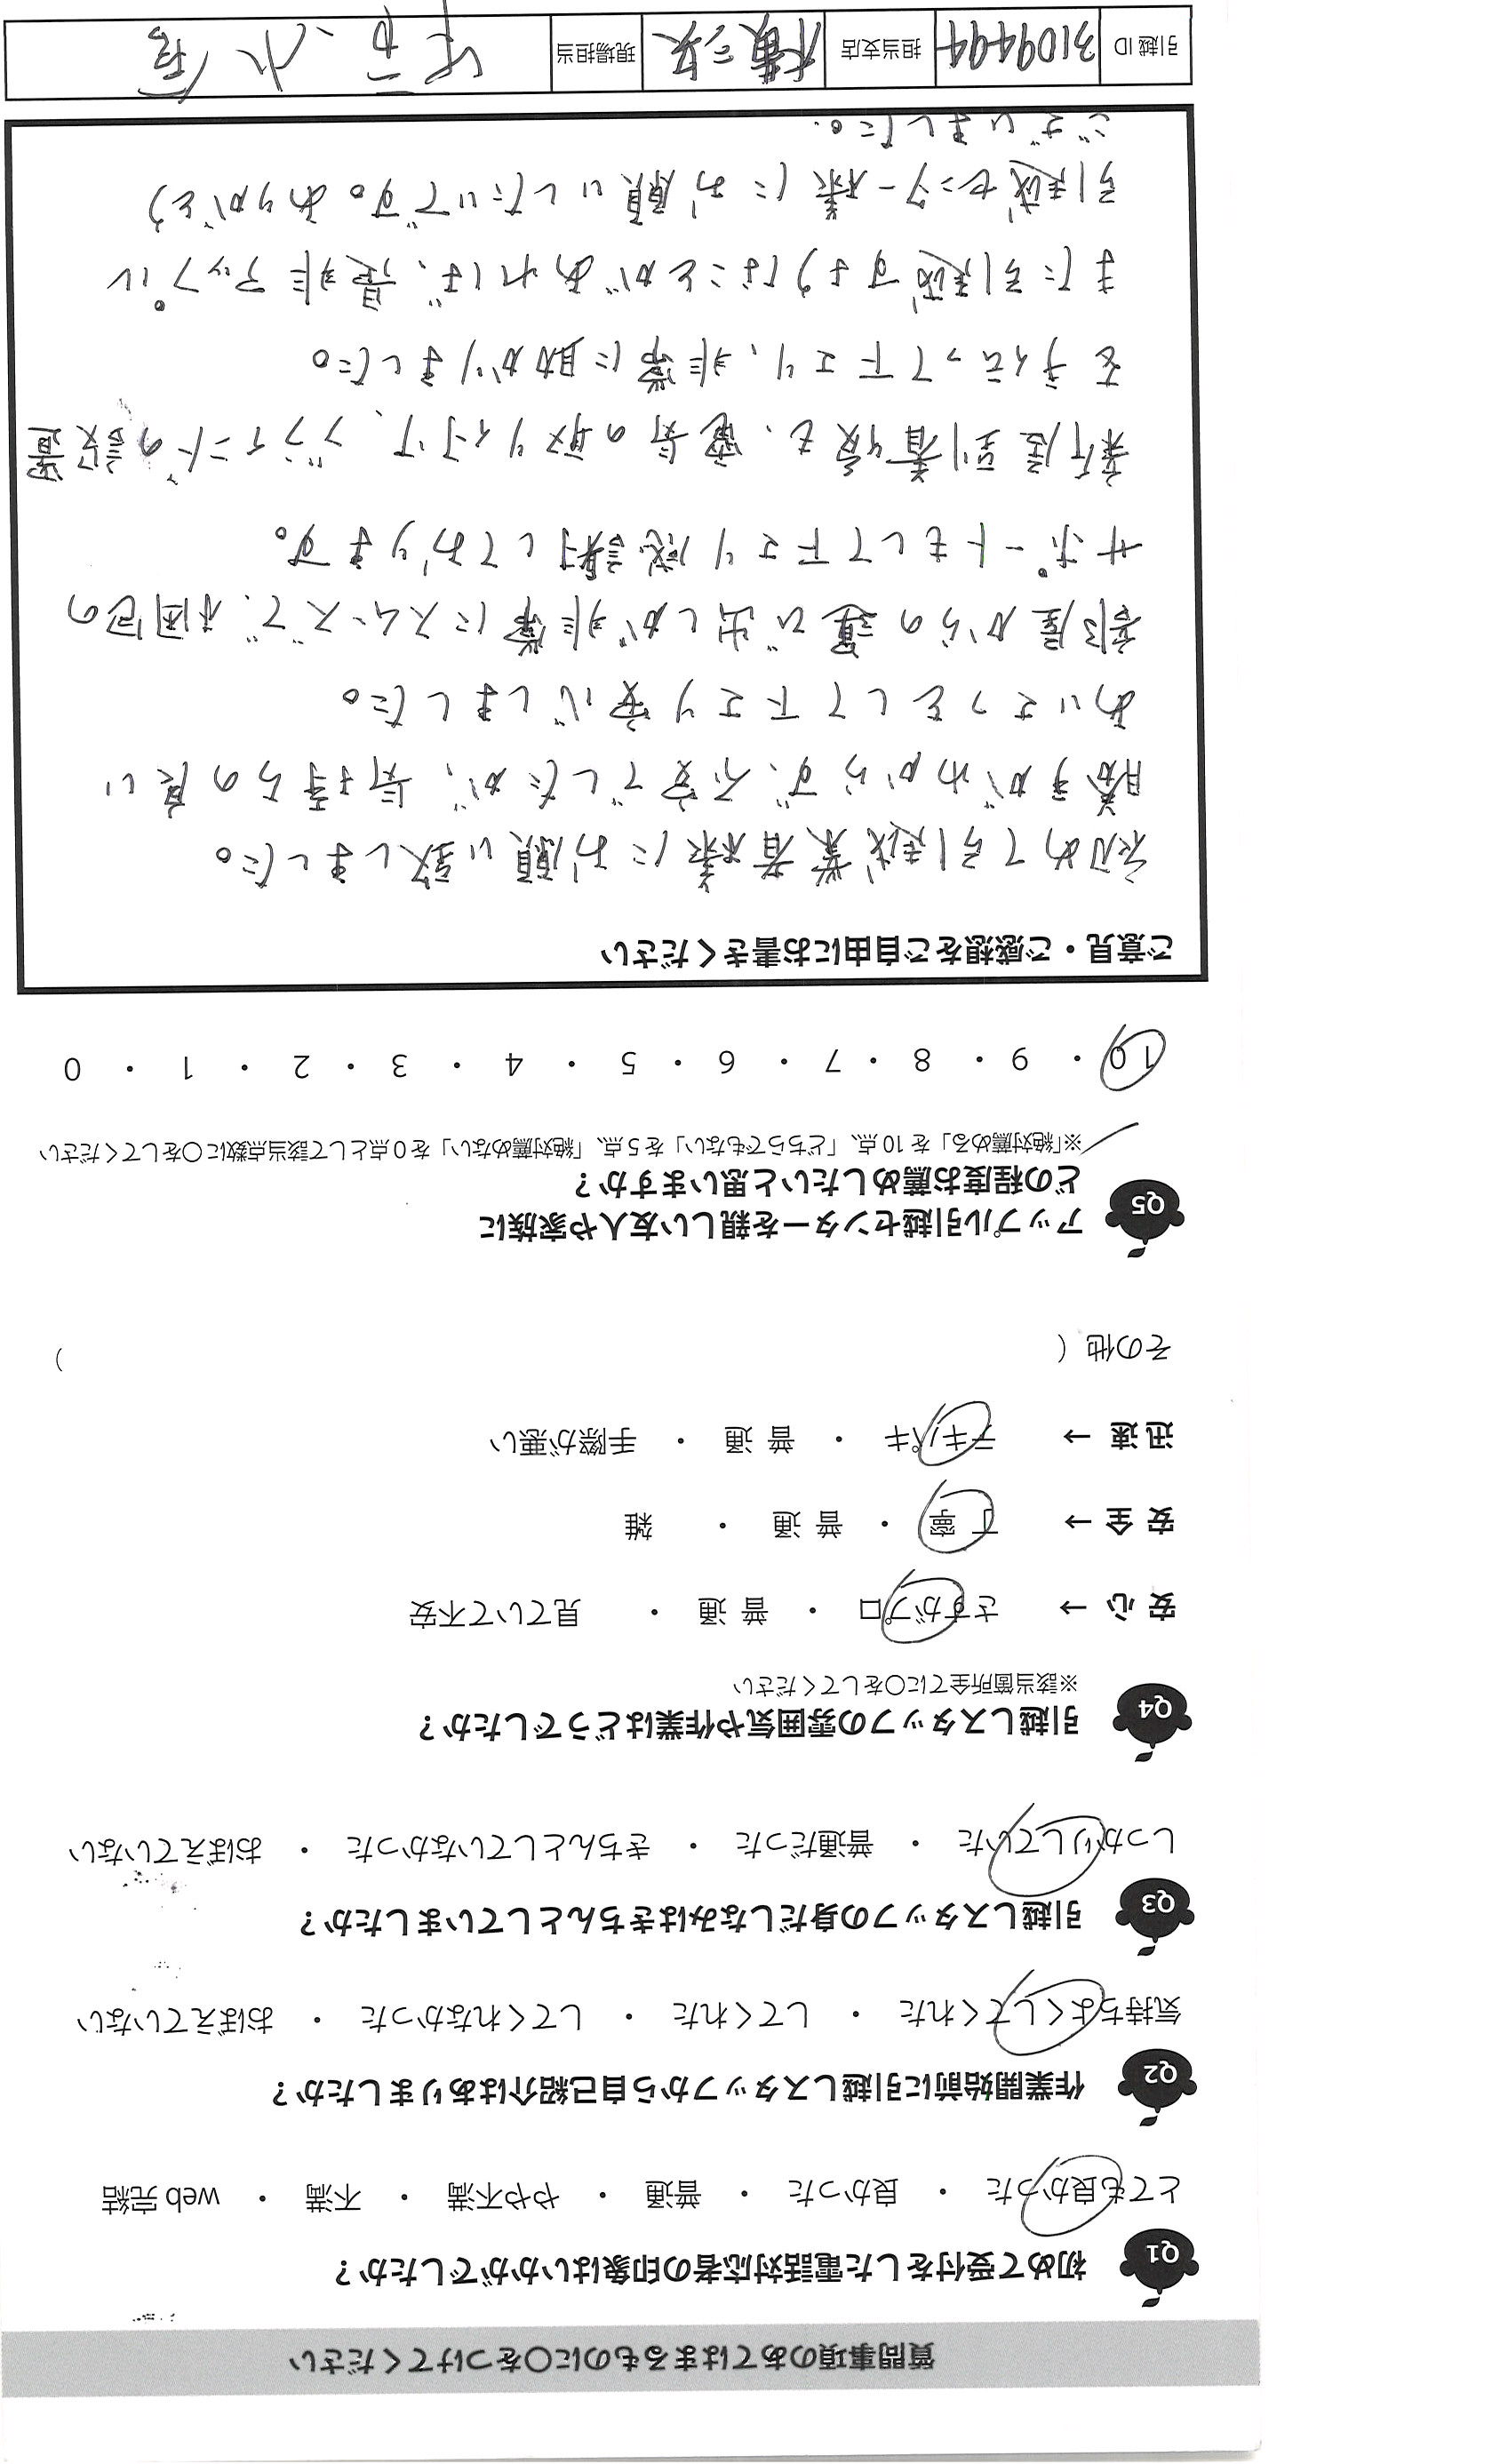 質問事項のあてはまるものに○をつけてください
Q1 初めて受付をした電話対応者の印象はいかがでしたか？
とても良かった ・ 良かった ・ 普通 ・ やや不満 ・ 不満 ・ web 完結
Q2 作業開始前に引越しスタッフから自己紹介はありましたか？
気持ちよくしてくれた ・ してくれた ・ してくれなかった ・ おぼえていない
Q3 引越しスタッフの身だしなみはきちんとしていましたか？
しっかりしていた ・ 普通だった ・ きちんとしていなかった ・ おぼえていない
Q4 引越しスタッフの雰囲気や作業はどうでしたか？
※該当箇所全てに○をしてください
安 心 → さすがプロ ・ 普 通 ・ 見ていて不安
安 全 → 丁 寧 ・ 普 通 ・ 雑
迅 速 → テキパキ ・ 普 通 ・ 手際が悪い
その他（ ）
Q5 アップル引越センターを親しい友人や家族に
どの程度お薦めしたいと思いますか？
※「絶対薦める」を 10 点、「どちらでもない」を 5 点、「絶対薦めない」を 0 点として該当点数に○をしてください
10 ・ 9 ・ 8 ・ 7 ・ 6 ・ 5 ・ 4 ・ 3 ・ 2 ・ 1 ・ 0
ご意見・ご感想をご自由にお書きください
初めて引越業者様にお願い致しました。
勝手がわからず、不安でしたが、気持ちの良い
あいさつをして下さり安心しました。
部屋からの運び出しが非常にスムーズで、梱包の
サポートもして下さり感謝しております。
新居到着後も、電気の取り付け、ブラインドの設置
を手伝って下さり、非常に助かりました。
また引越すようなことがあれば、是非アップル
引越センター様にお願いしたいです。ありがとう
ございました。
引越 ID 3109494 担当支店 現場担当